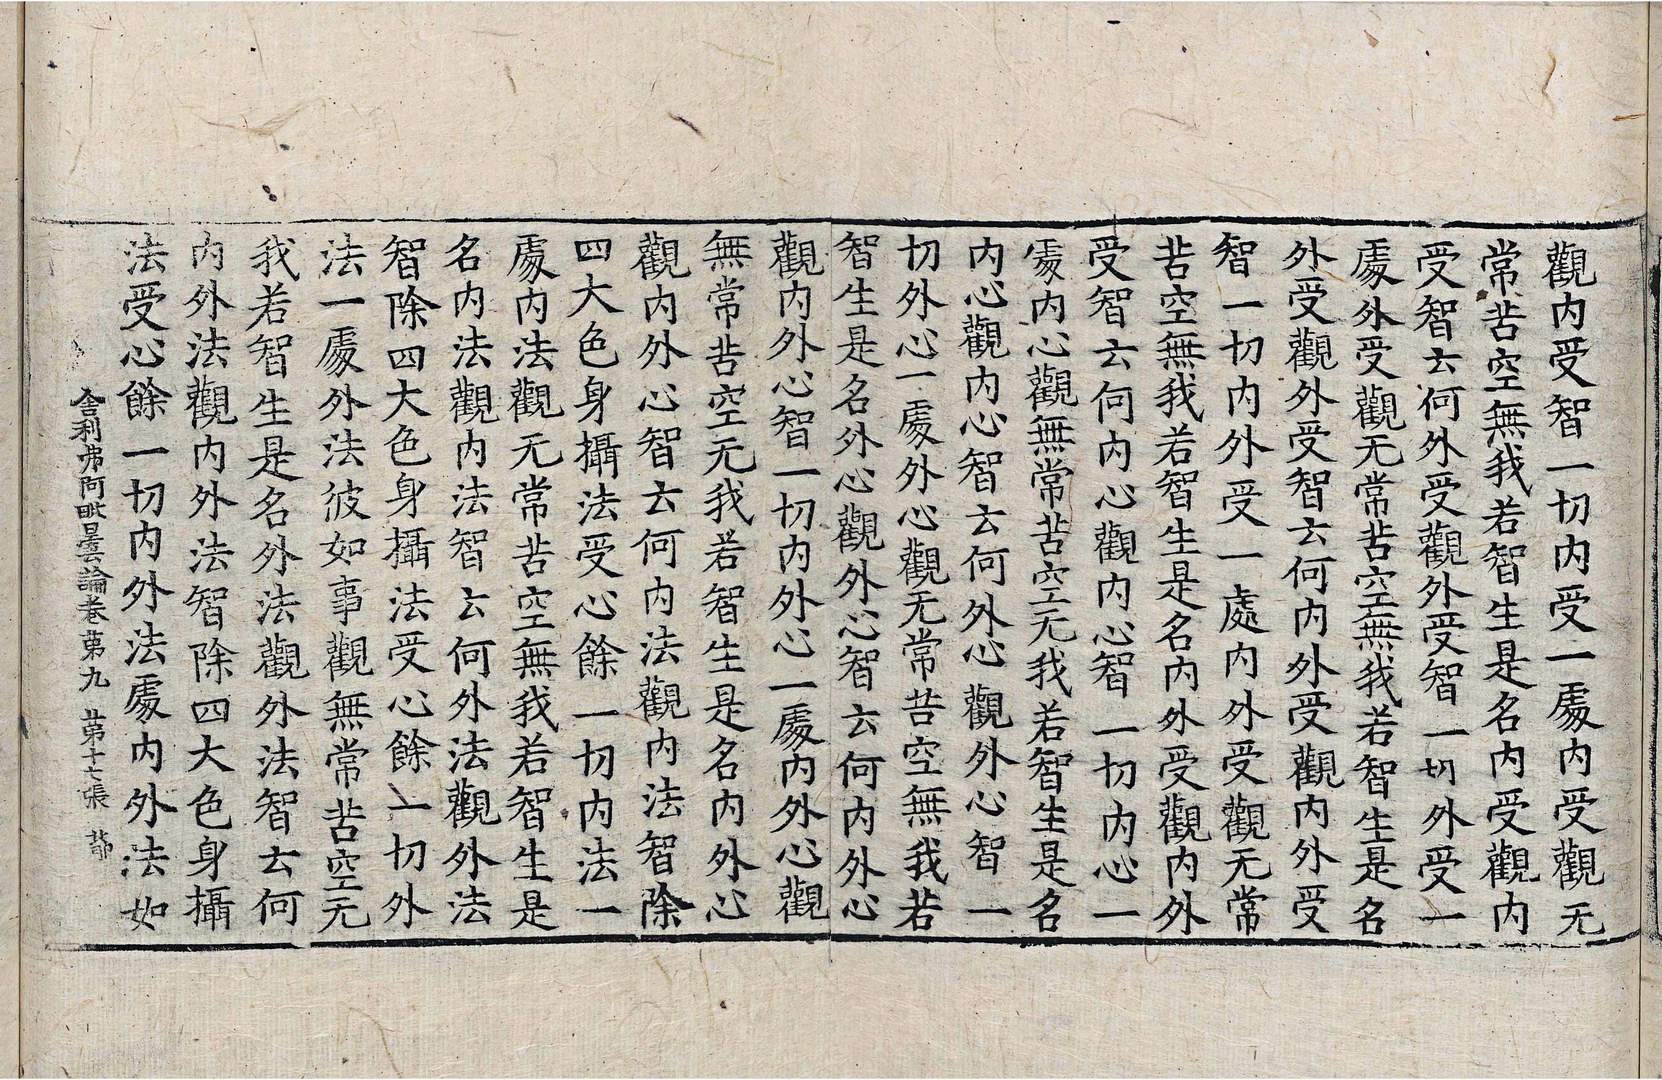 觀内受智一切内受一處内受觀无
常苦空無我若智生是名内受觀内
受智云何外受觀外受智一切外受一
處外受觀无常苦空無我若智生是名
外受觀外受智云何内外受觀内外受
智一切内外受一處内外受觀无常
苦空無我若智生是名内外受觀内外
受智云何内心觀内心智一切内心一
處内心觀無常苦空无我若智生是名
内心觀内心智云何外心觀外心智一
切外心一處外心觀无常苦空無我若
智生是名外心觀外心智云何内外心
觀内外心智一切内外心一處内外心觀
無常苦空无我若智生是名内外心
觀内外心智云何内法觀内法智除
四大色身攝法受心餘一切内法一
處内法觀无常苦空無我若智生是
名内法觀内法智云何外法觀外法
智除四大色身攝法受心餘一切外
法一處外法彼如事觀無常苦空无
我若智生是名外法觀外法智云何
内外法觀内外法智除四大色身攝
法受心餘一切内外法處内外法如
舍利弗阿毗曇論卷第九 第十七張